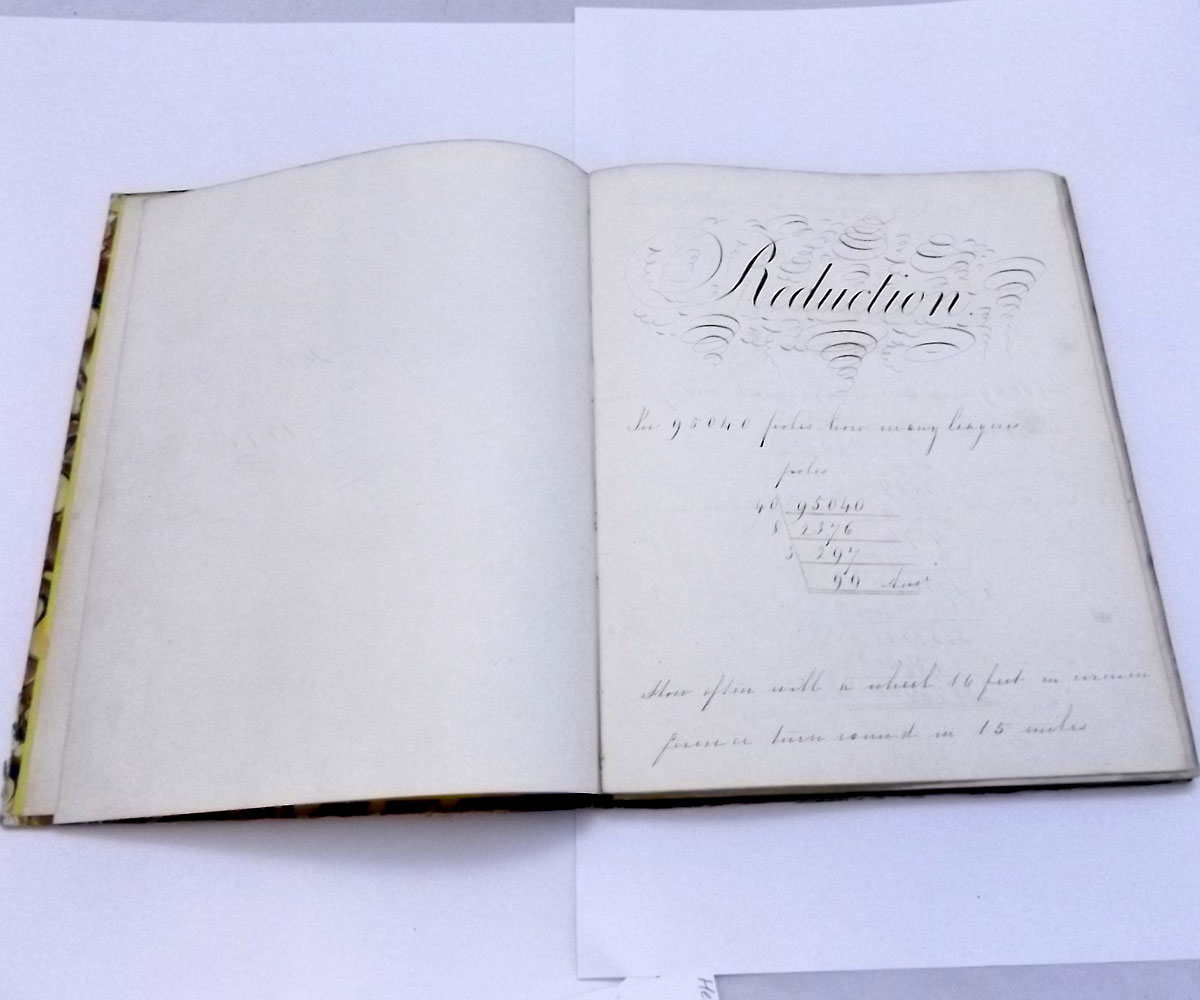 Reduction.
In 95040 poles how many leagues
poles
40 95040
8 2376
3 297
99 Ans
How often will a wheel 16 feet in circum
ference turn round in 15 miles
He